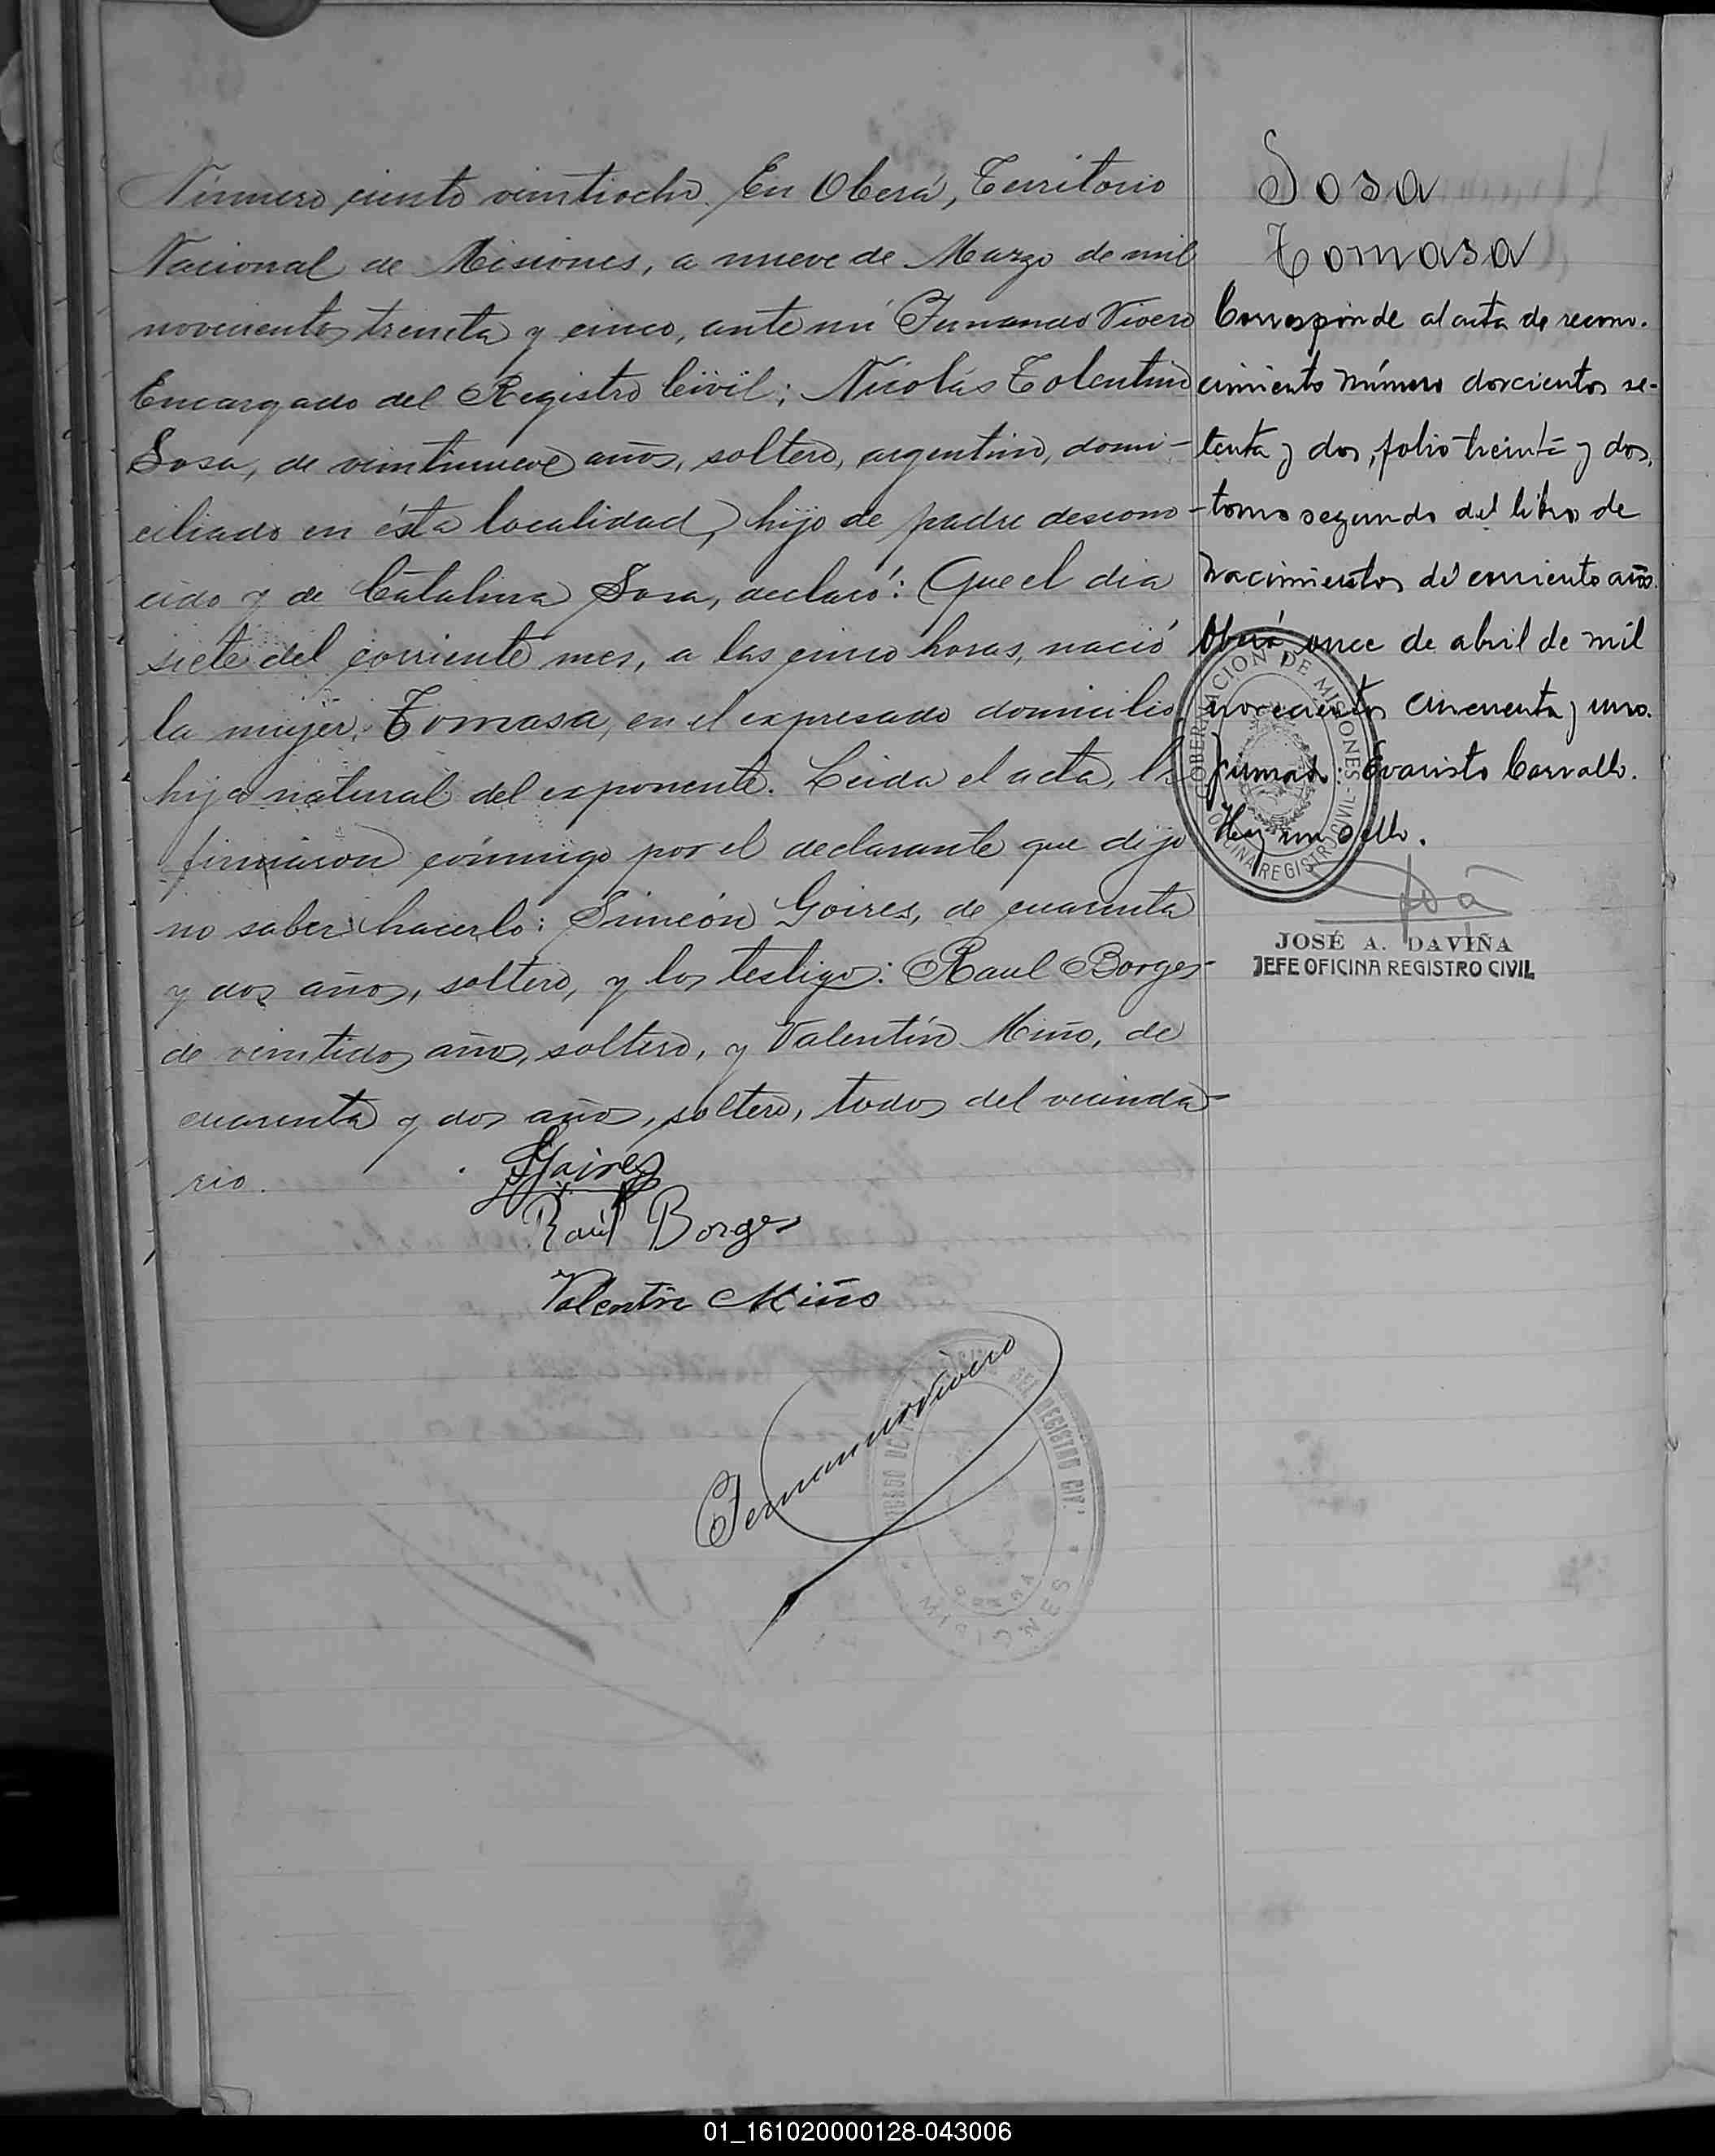 Número ciento veintiocho. En Oberá, Territorio
Nacional de Misiones, a nueve de Marzo de mil
novecientos treinta y cinco, ante mí Fernando Vivero
Encargado del Registro Civil; Nicolás Tolentino
Sosa, de veintinueve años, soltero, argentino, domi-
ciliado en ésta localidad, hijo de padre descono-
cido y de Catalina Sosa, declaró: Que el dia
siete del corriente mes, a las cinco horas, nació
la mujer: Tomasa, en el expresado domicilio,
hija natural del exponente. Leida el acta, la
firmaron conmigo por el declarante que dijo
no saber hacerlo: Simeón Goires, de cuarenta
y dos años, soltero, y los testigos: Raul Borges
de veintidos años, soltero, y Valentín Miño, de
cuarenta y dos años, soltero, todos del vecinda-
rio.
Raúl Borges
Valentin Miño
Fernando Vivero
REGISTRO CIVIL
MISIONES
Sosa
Tomasa
Corresponde al acta de recono-
cimiento número doscientos se-
tenta y dos, folio treinta y dos,
tomo segundo del libro de
nacimientos del corriente año.
Oberá once de abril de mil
novecientos cincuenta y uno.
Firmado: Evaristo Carvallo.
Hay un sello.
GOBERNACION DE MISIONES
OFICINA REGISTRO CIVIL
JOSÉ A. DAVIÑA
JEFE OFICINA REGISTRO CIVIL
01_161020000128-043006